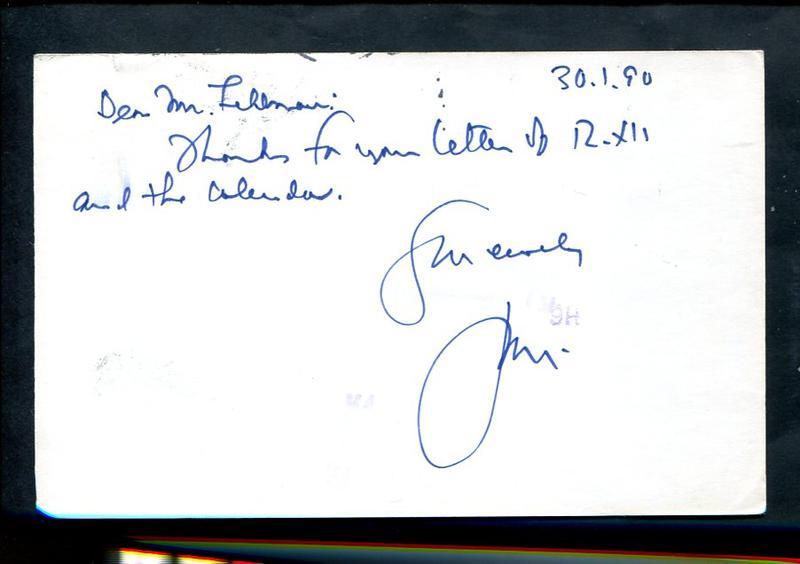 30.1.90
Dear Mr. Fehlmann:
Thanks for your letter of 12.XII
and the calendar.
Sincerely
9H